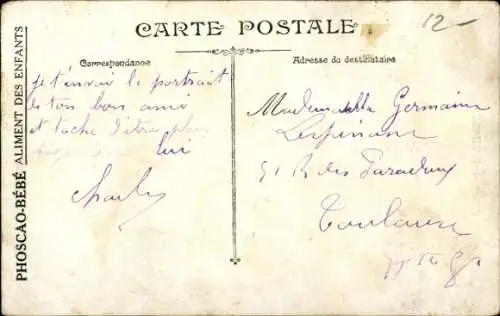 CARTE POSTALE
12
Correspondance
Adresse du destinataire
PHOSCAO-BÉBÉ ALIMENT DES ENFANTS
je t'envoi le portrait
de ton bon ami
et tache d'être plus
lui
Charles
Mademoiselle Germaine
Lespinasse
51 R des Paradoux
Toulouse